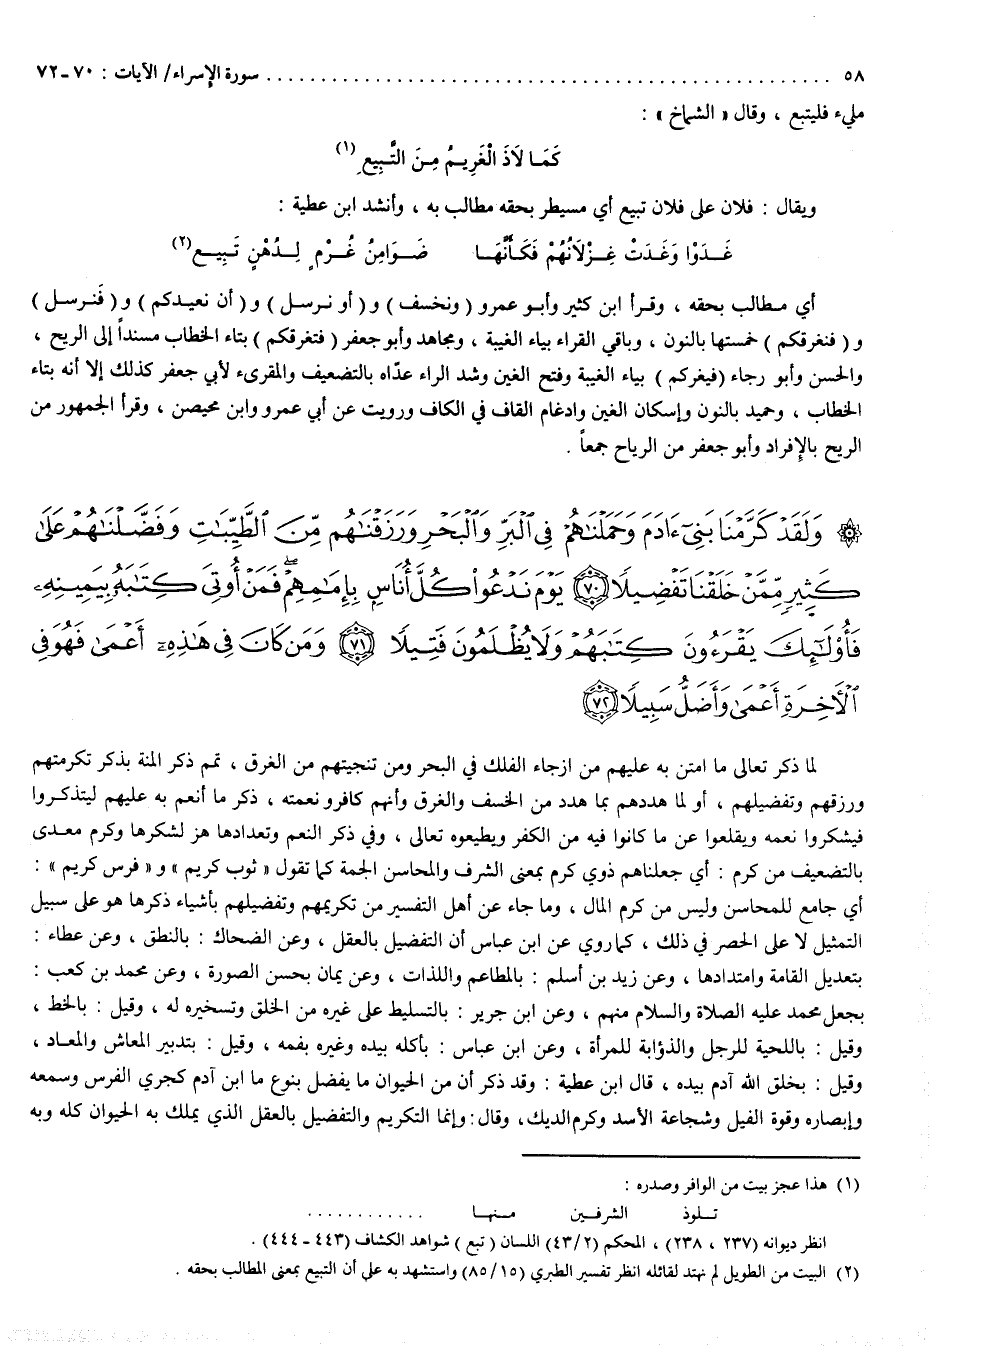 ٥٨ ........ سورة الإسراء/ الآيات : ٧٠ـ٧٢
مليء فليتبع ، وقال « الشماخ » :
كَمَـا لَاذَ الْغَرِيـمُ مِنَ التَّبِيعِ (١)
ويقال : فلان على فلان تبيع أي مسيطر بحقه مطالب به ، وأنشد ابن عطية :
غَـدَوْا وَغَدَتْ غِـزْلَانُهُمْ فَكَأَنَّهَـا ضَـوَامِنُ غُـرْمٍ لِـدُهْنٍ تَبِيـعِ (٢)
أي مـطالب بحقه ، وقـرأ ابن كثير وأبـو عمرو ( ونخسف ) و( أو نـرسل ) و( أن نعيـدكم ) و( فَنرسـل )
و ( فنغرقكم ) خمستها بالنون ، وباقي القراء بياء الغيبة ، ومجاهد وأبو جعفر ( فتغرقكم ) بتاء الخطاب مسنداً إلى الريح ،
والحسن وأبو رجاء (فيغركم ) بياء الغيبة وفتح الغين وشد الراء عدّاه بالتضعيف والمقرىء لأبي جعفر كذلك إلا أنه بتاء
الخطاب ، وحميد بالنون وإسكان الغين وادغام القاف في الكاف ورويت عن أبي عمرو وابن محيصن ، وقرأ الجمهور من
الريح بالإفراد وأبو جعفر من الرياح جمعاً .
۞ وَلَقَدْ كَرَّمْنَا بَنِيٓ ءَادَمَ وَحَمَلْنَٰهُمْ فِي ٱلْبَرِّ وَٱلْبَحْرِ وَرَزَقْنَٰهُم مِّنَ ٱلطَّيِّبَٰتِ وَفَضَّلْنَٰهُمْ عَلَىٰ
كَثِيرٍ مِّمَّنْ خَلَقْنَا تَفْضِيلًا ٧٠ يَوْمَ نَدْعُوا۟ كُلَّ أُنَاسٍۭ بِإِمَٰمِهِمْ ۖ فَمَنْ أُوتِيَ كِتَٰبَهُۥ بِيَمِينِهِۦ
فَأُو۟لَٰٓئِكَ يَقْرَءُونَ كِتَٰبَهُمْ وَلَا يُظْلَمُونَ فَتِيلًا ٧١ وَمَن كَانَ فِي هَٰذِهِۦٓ أَعْمَىٰ فَهُوَ فِي
ٱلْأَخِرَةِ أَعْمَىٰ وَأَضَلُّ سَبِيلًا ٧٢
لما ذكر تعالى ما امتن به عليهم من ازجاء الفلك في البحر ومن تنجيتهم من الغرق ، تمم ذكر المنة بذكر تكرمتهم
ورزقهم وتفضيلهم ، أو لما هددهم بما هدد من الخسف والغرق وأنهم كافرو نعمته ، ذكر ما أنعم به عليهم ليتذكـروا
فيشكروا نعمه ويقلعوا عن ما كانوا فيه من الكفر ويطيعوه تعالى ، وفي ذكر النعم وتعدادها هز لشكرها وكرم معـدى
بالتضعيف من كرم : أي جعلناهم ذوي كرم بمعنى الشرف والمحاسن الجمة كما تقول « ثوب كريم » و « فرس كريم » :
أي جامع للمحاسن وليس من كرم المال ، وما جاء عن أهل التفسير من تكريمهم وتفضيلهم بأشياء ذكرها هو على سبيل
التمثيل لا على الحصر في ذلك ، كما روي عن ابن عباس أن التفضيل بالعقل ، وعن الضحاك : بالنطق ، وعن عطاء :
بتعديل القامة وامتدادها ، وعن زيد بن أسلم : بالمطاعم واللذات ، وعن يمان بحسن الصورة ، وعن محمد بن كعب :
بجعل محمد عليه الصلاة والسلام منهم ، وعن ابن جرير : بالتسليط على غيره من الخلق وتسخيره له ، وقيل : بالخط ،
وقيل : باللحية للرجل والذؤابة للمرأة ، وعن ابن عباس : بأكله بيده وغيره بفمه ، وقيل : بتدبير المعاش والمعـاد ،
وقيل : بخلق الله آدم بيده ، قال ابن عطية : وقد ذكر أن من الحيوان ما يفضل بنوع ما ابن آدم كجري الفرس وسمعه
وإبصاره وقوة الفيل وشجاعة الأسد وكرم الديك، وقال: وإنما التكريم والتفضيل بالعقل الذي يملك به الحيوان كله وبه
(١) هذا عجز بيت من الوافر وصدره :
تـلوذ الشرفـين مـنهـا ............
انظر ديوانه (٢٣٧ ، ٢٣٨) ، المحكم (٤٣/٢) اللسان ( تبع ) شواهد الكشاف (٤٤٣ - ٤٤٤) .
(٢) البيت من الطويل لم نهتد لقائله انظر تفسير الطبري (٨٥/١٥) واستشهد به على أن التبيع بمعنى المطالب بحقه .